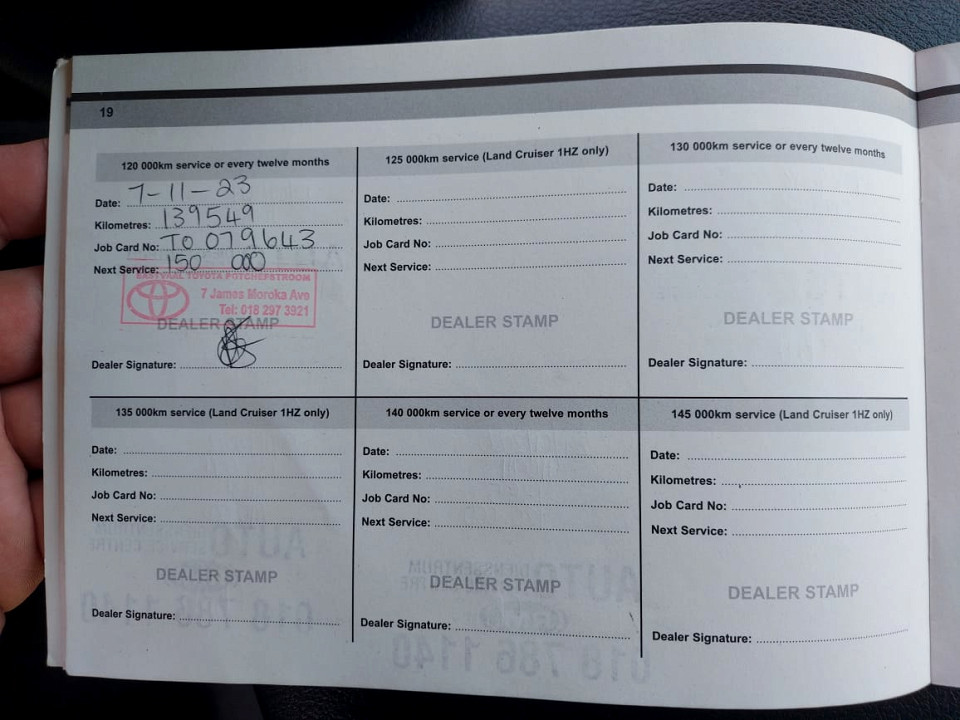 19
120 000km service or every twelve months
Date: 7-11-23
Kilometres: 139549
Job Card No: TO 079643
Next Service: 150 000
EASTVAAL TOYOTA POTCHEFSTROOM
7 James Moroka Ave
Tel: 018 297 3921
DEALER STAMP
Dealer Signature:
125 000km service (Land Cruiser 1HZ only)
Date:
Kilometres:
Job Card No:
Next Service:
DEALER STAMP
Dealer Signature:
130 000km service or every twelve months
Date:
Kilometres:
Job Card No:
Next Service:
DEALER STAMP
Dealer Signature:
135 000km service (Land Cruiser 1HZ only)
Date:
Kilometres:
Job Card No:
Next Service:
DEALER STAMP
Dealer Signature:
140 000km service or every twelve months
Date:
Kilometres:
Job Card No:
Next Service:
DEALER STAMP
Dealer Signature:
145 000km service (Land Cruiser 1HZ only)
Date:
Kilometres:
Job Card No:
Next Service:
DEALER STAMP
Dealer Signature: